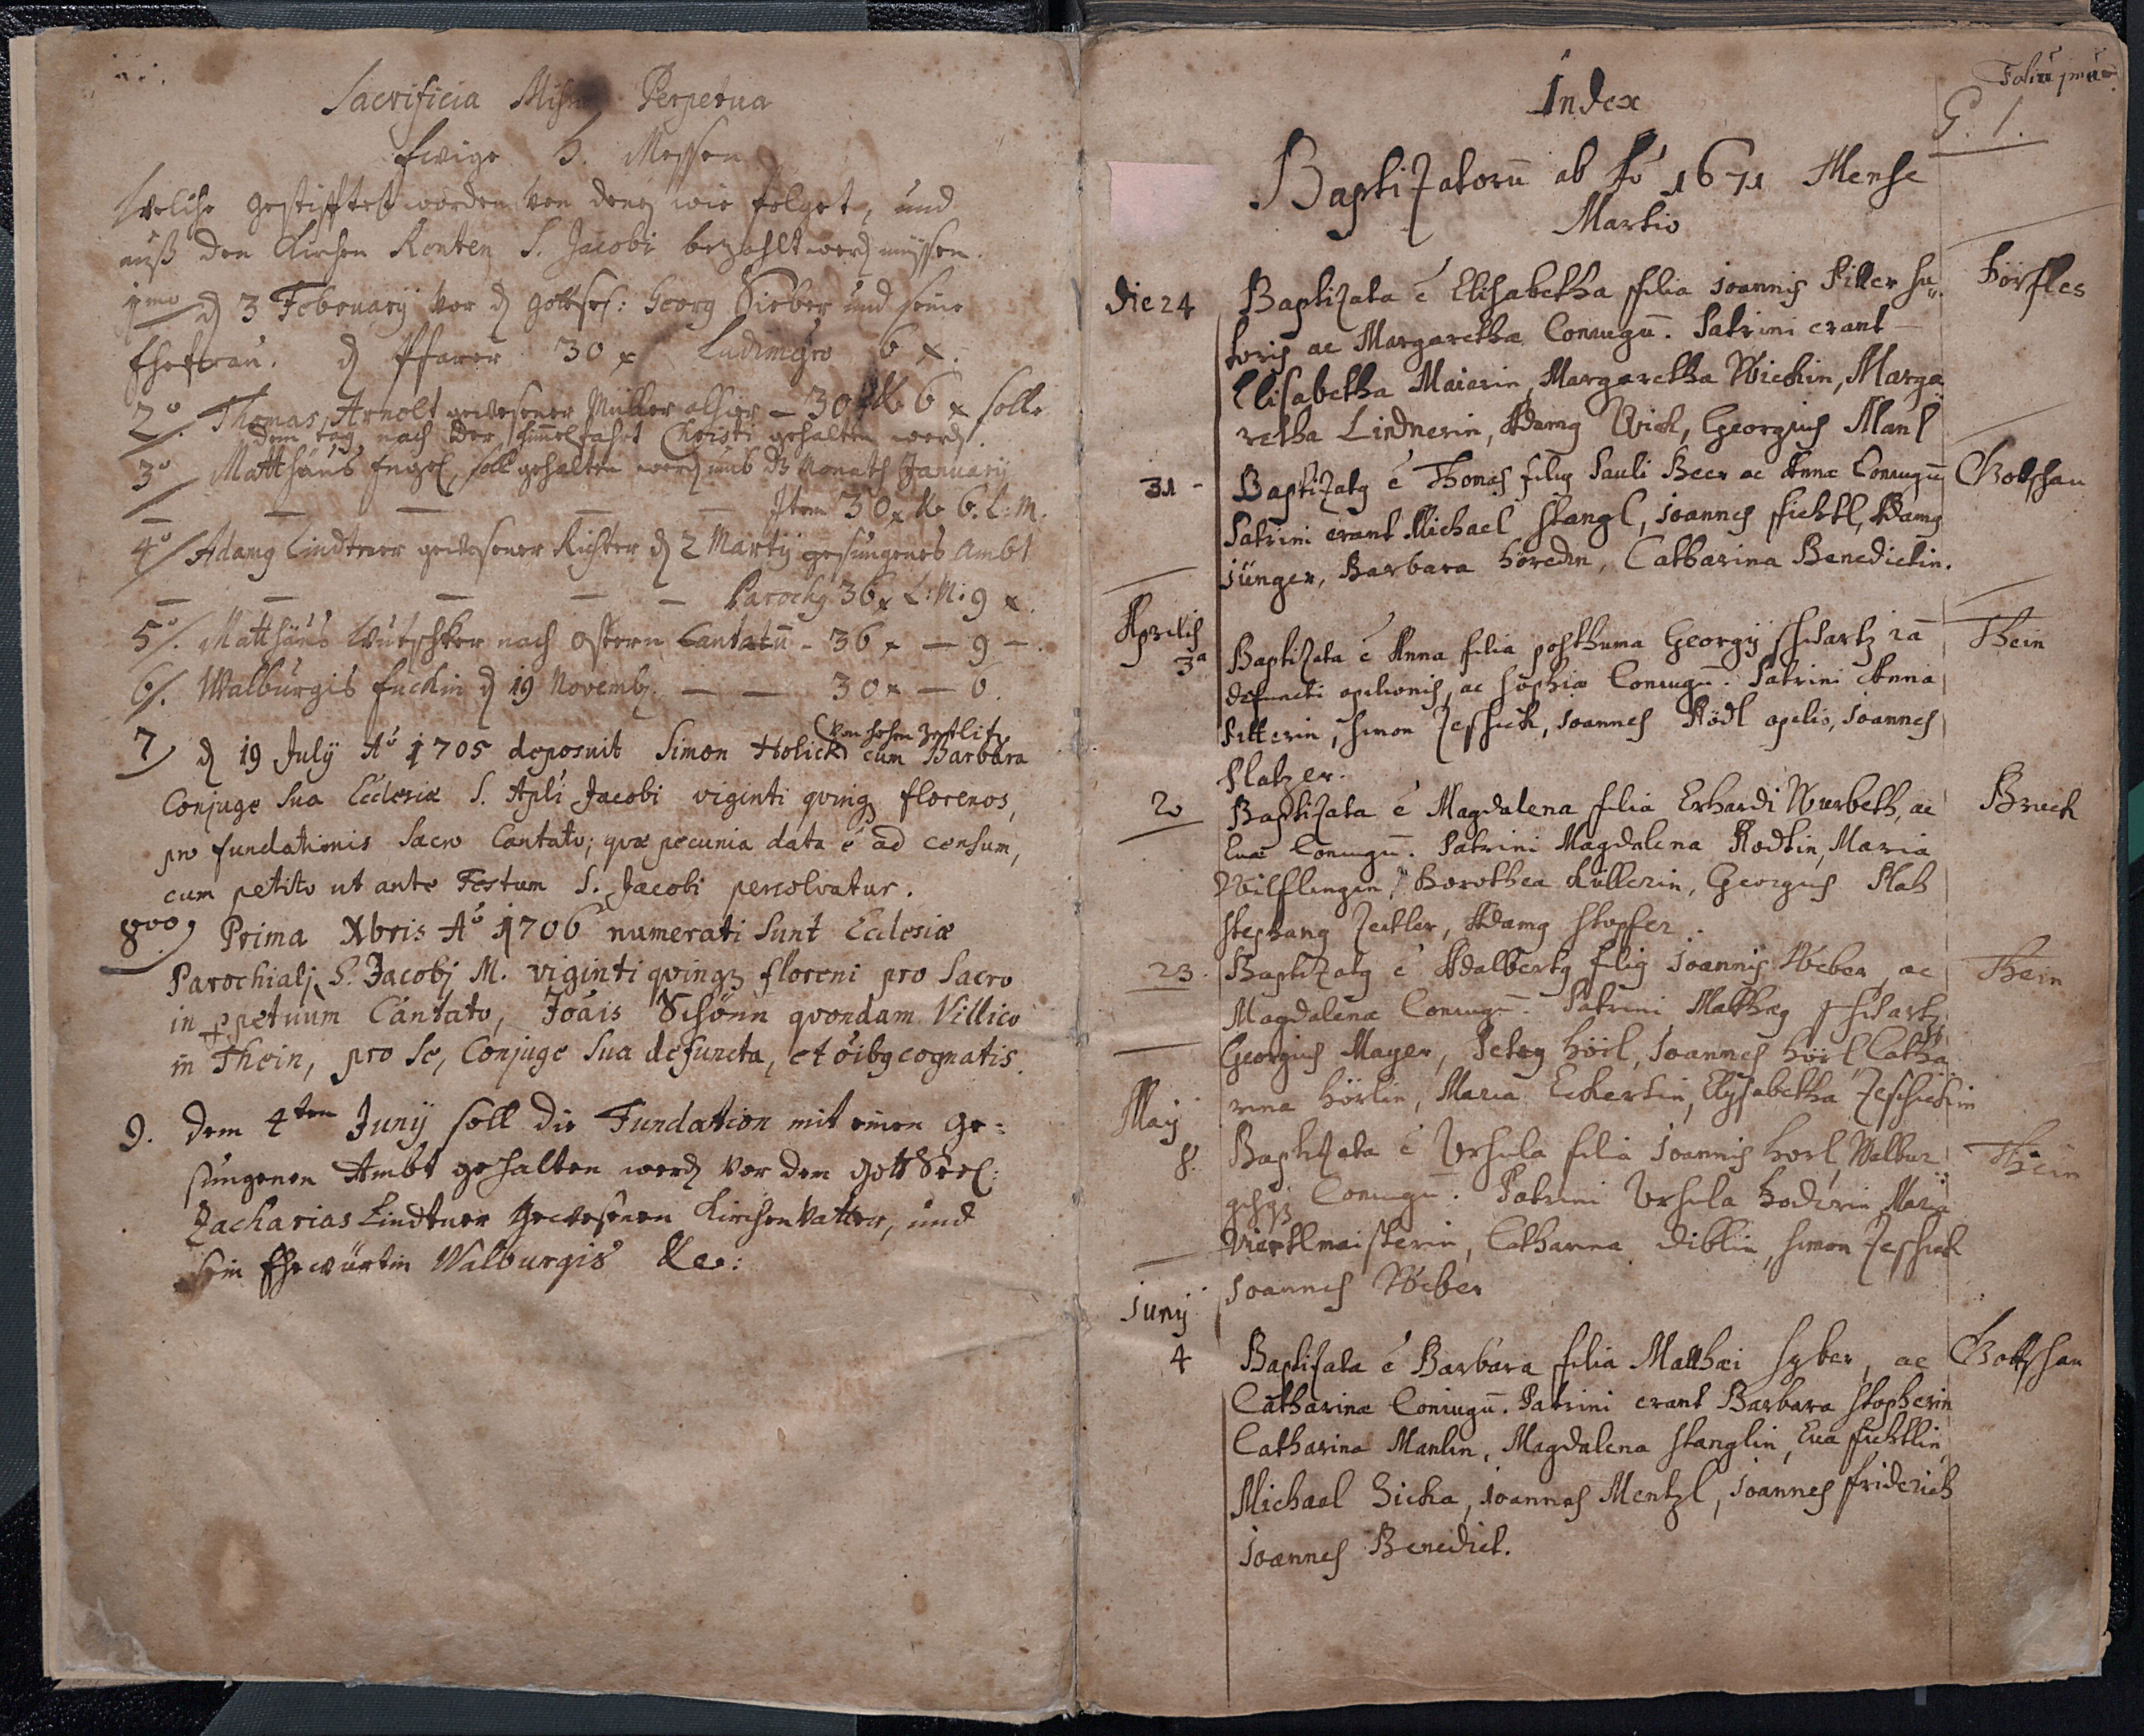 Sacrificia Missæ Perpetua
Ewige H. Messen
Welche gestifftet worden von denen wie folget, und
auß den Kirchen Renten S. Jacobi bezahlt werd müssen.
1mo d 3 February vor d gottsel: Georg Sieber und seine
Ehefrau. d Pfarer 30 x Ludimgro 6 x.
2o. Thomas Arnolt gewesener Müller alhier – 30 x 6 x solle
dem tag nach der himelfahrt Christi gehalten werd.
3o Matthäus Engel, soll gehalten werd umb dz Monath January
Item 30 x 6. L: M.
4o/ Adamg Lindtner gewesener Richter d 2 Martij gesungenes Ambt
— — — — — Parochg 36 x L: M: 9 x.
5o/. Matthäus Wutschker nach ostern Cantatū – 36 x — 9 –.
6/. Walburgis Fuckin d 19 Novemb. — — 30 x — 6.
von hohen Zetlitz
7) d 19 July Aō 1705 deposuit Simon Holick cum Barbara
Conjuge Sua Ecclesiæ S. Apli Jacobi viginti qving florenos,
pro fundationis Sacro Cantato; qvæ pecunia data ē ad censum,
cum petito ut ante Festum S. Jacobi persolvatur.
8vo) Prima Xbris Aō 1706 numerati Sunt Ecclesiæ
Parochialj S. Jacobj M. viginti qvingz floreni pro Sacro
in ppetuum Cantato, Joāis Schönn qvondam Villico
in Thein, pro Se, Conjuge Sua defuncta, et oībg cognatis.
9. Dem 4ten Junij soll die Fundation mit einen ge=
sungenen Ambt gehalten werd vor dem gott Seel:
Zacharias Lindtner gewesenen Kirchen Vatter, und
sein Ehewürtin Walburgis &c:
Foliū primū
Index
G. 1.
BaptiZatorū ab Aō 1671 Mense
Martio
Die 24 BaptiZata ē Elisabetha filia Joannis Piller su
toris ac Margarethæ Coniugū. Patrini erant
Elisabetha Maierin, Margaretha Wickin, Marga
retha Lindnerin, Adamg Wick, Georgius Manl
Dörfles
31 – BaptiZatg ē Thomas filig Pauli Beer ac Annæ Coniugū
Patrini erant Michael Stangl, Joannes Fichtl, Adamg
Jünger, Barbara Catharina Benedictin.
Gottschau
Aprilis
3a BaptiZata ē Anna filia posthuma Georgij Schwartz iā
defuncti opilionis, ac Sophiæ Coniugū. Patrini Anna
Pillerin, Simon Zeschick, Joannes Rödl opilio, Joannes
Platzer.
Thein
20 BaptiZata ē Magdalena filia Erhardi Wurbeth, ac
Euæ Coniugū. Patrini Magdalena Rodtin, Maria
Wilflingin, Dorothea Küllerin, Georgius Platz
Stephang Zeitler, Adamg Stopfer.
Bruck
23. BaptiZatg ē Adalbertg filig Joannis Weber, ac
Magdalenæ Coniugū. Patrini Matthæg Schwartz
Georgius Mayer, Petrg Hörl, Joannes Hörl Catha
rina Hörlin, Maria Eckertin, Elysabetha Zeschickin
Thein
Maij
8. BaptiZata ē Vrsula filia Joannis Hörl, Walbur
gisqz Coniugū. Patrini Vrsula Maria
Viertlmaisterin, Catharina Simon Zeschick
Joannes Weber
Thein
Junij
4 BaptiZata ē Barbara filia Matthæi Syber, ac
Catharinæ Coniugū. Patrini erant Barbara Stopherin
Catharina Manlin, Magdalena Stanglin, Eua Fichtlin,
Michael Joannes Mentzl, Joannes Friderich
Joannes Benedict.
Gottschau